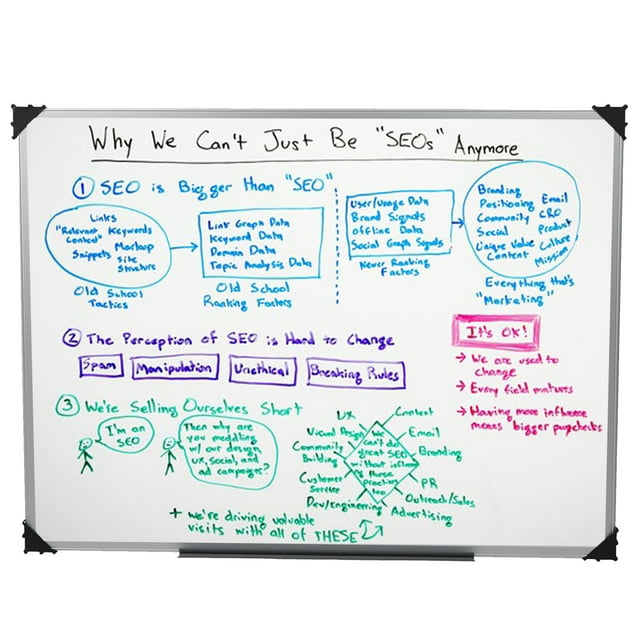 Why We Can't Just Be "SEOs" Anymore
① SEO is Bigger than "SEO"
Links
"Relevant Keywords
Content"
Markup
Snippets
Site
Structure
Old School
Tactics
Link Graph Data
Keyword Data
Domain Data
Topic Analysis Data
Old School
Ranking Factors
User/Usage Data
Brand Signals
Offline Data
Social Graph Signals
Newer Ranking
Factors
Branding
Positioning
Community
Social
Unique Value
Content
Email
CRO
Product
Culture
Mission
Everything that's
"Marketing"
② The Perception of SEO is Hard to Change
Spam
Manipulation
Unethical
Breaking Rules
It's OK!
→ We are used to
change
→ Every field matures
→ Having more influence
means bigger paychecks
③ We're Selling Ourselves Short
I'm an
SEO
Then why are
you meddling
w/ our design,
UX, social, and
ad campaigns?
UX
Content
Visual Design
Email
Community
Building
Branding
Customer
Service
PR
Dev/Engineering
Outreach/Sales
Advertising
We
can't do
great SEO
without influencing
these
practices
too
+ we're driving valuable
visits with all of THESE